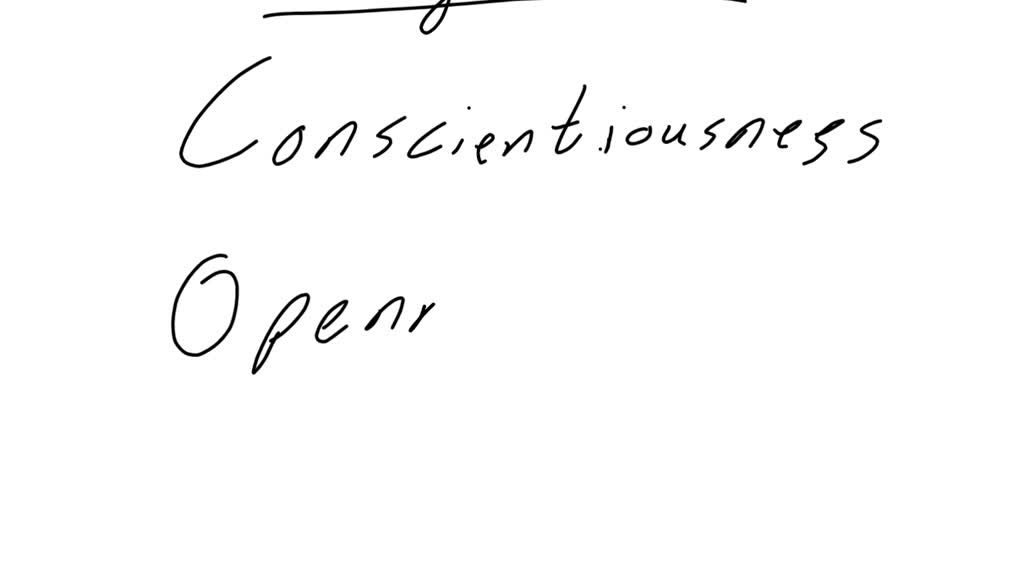 Conscientiousness
Openr